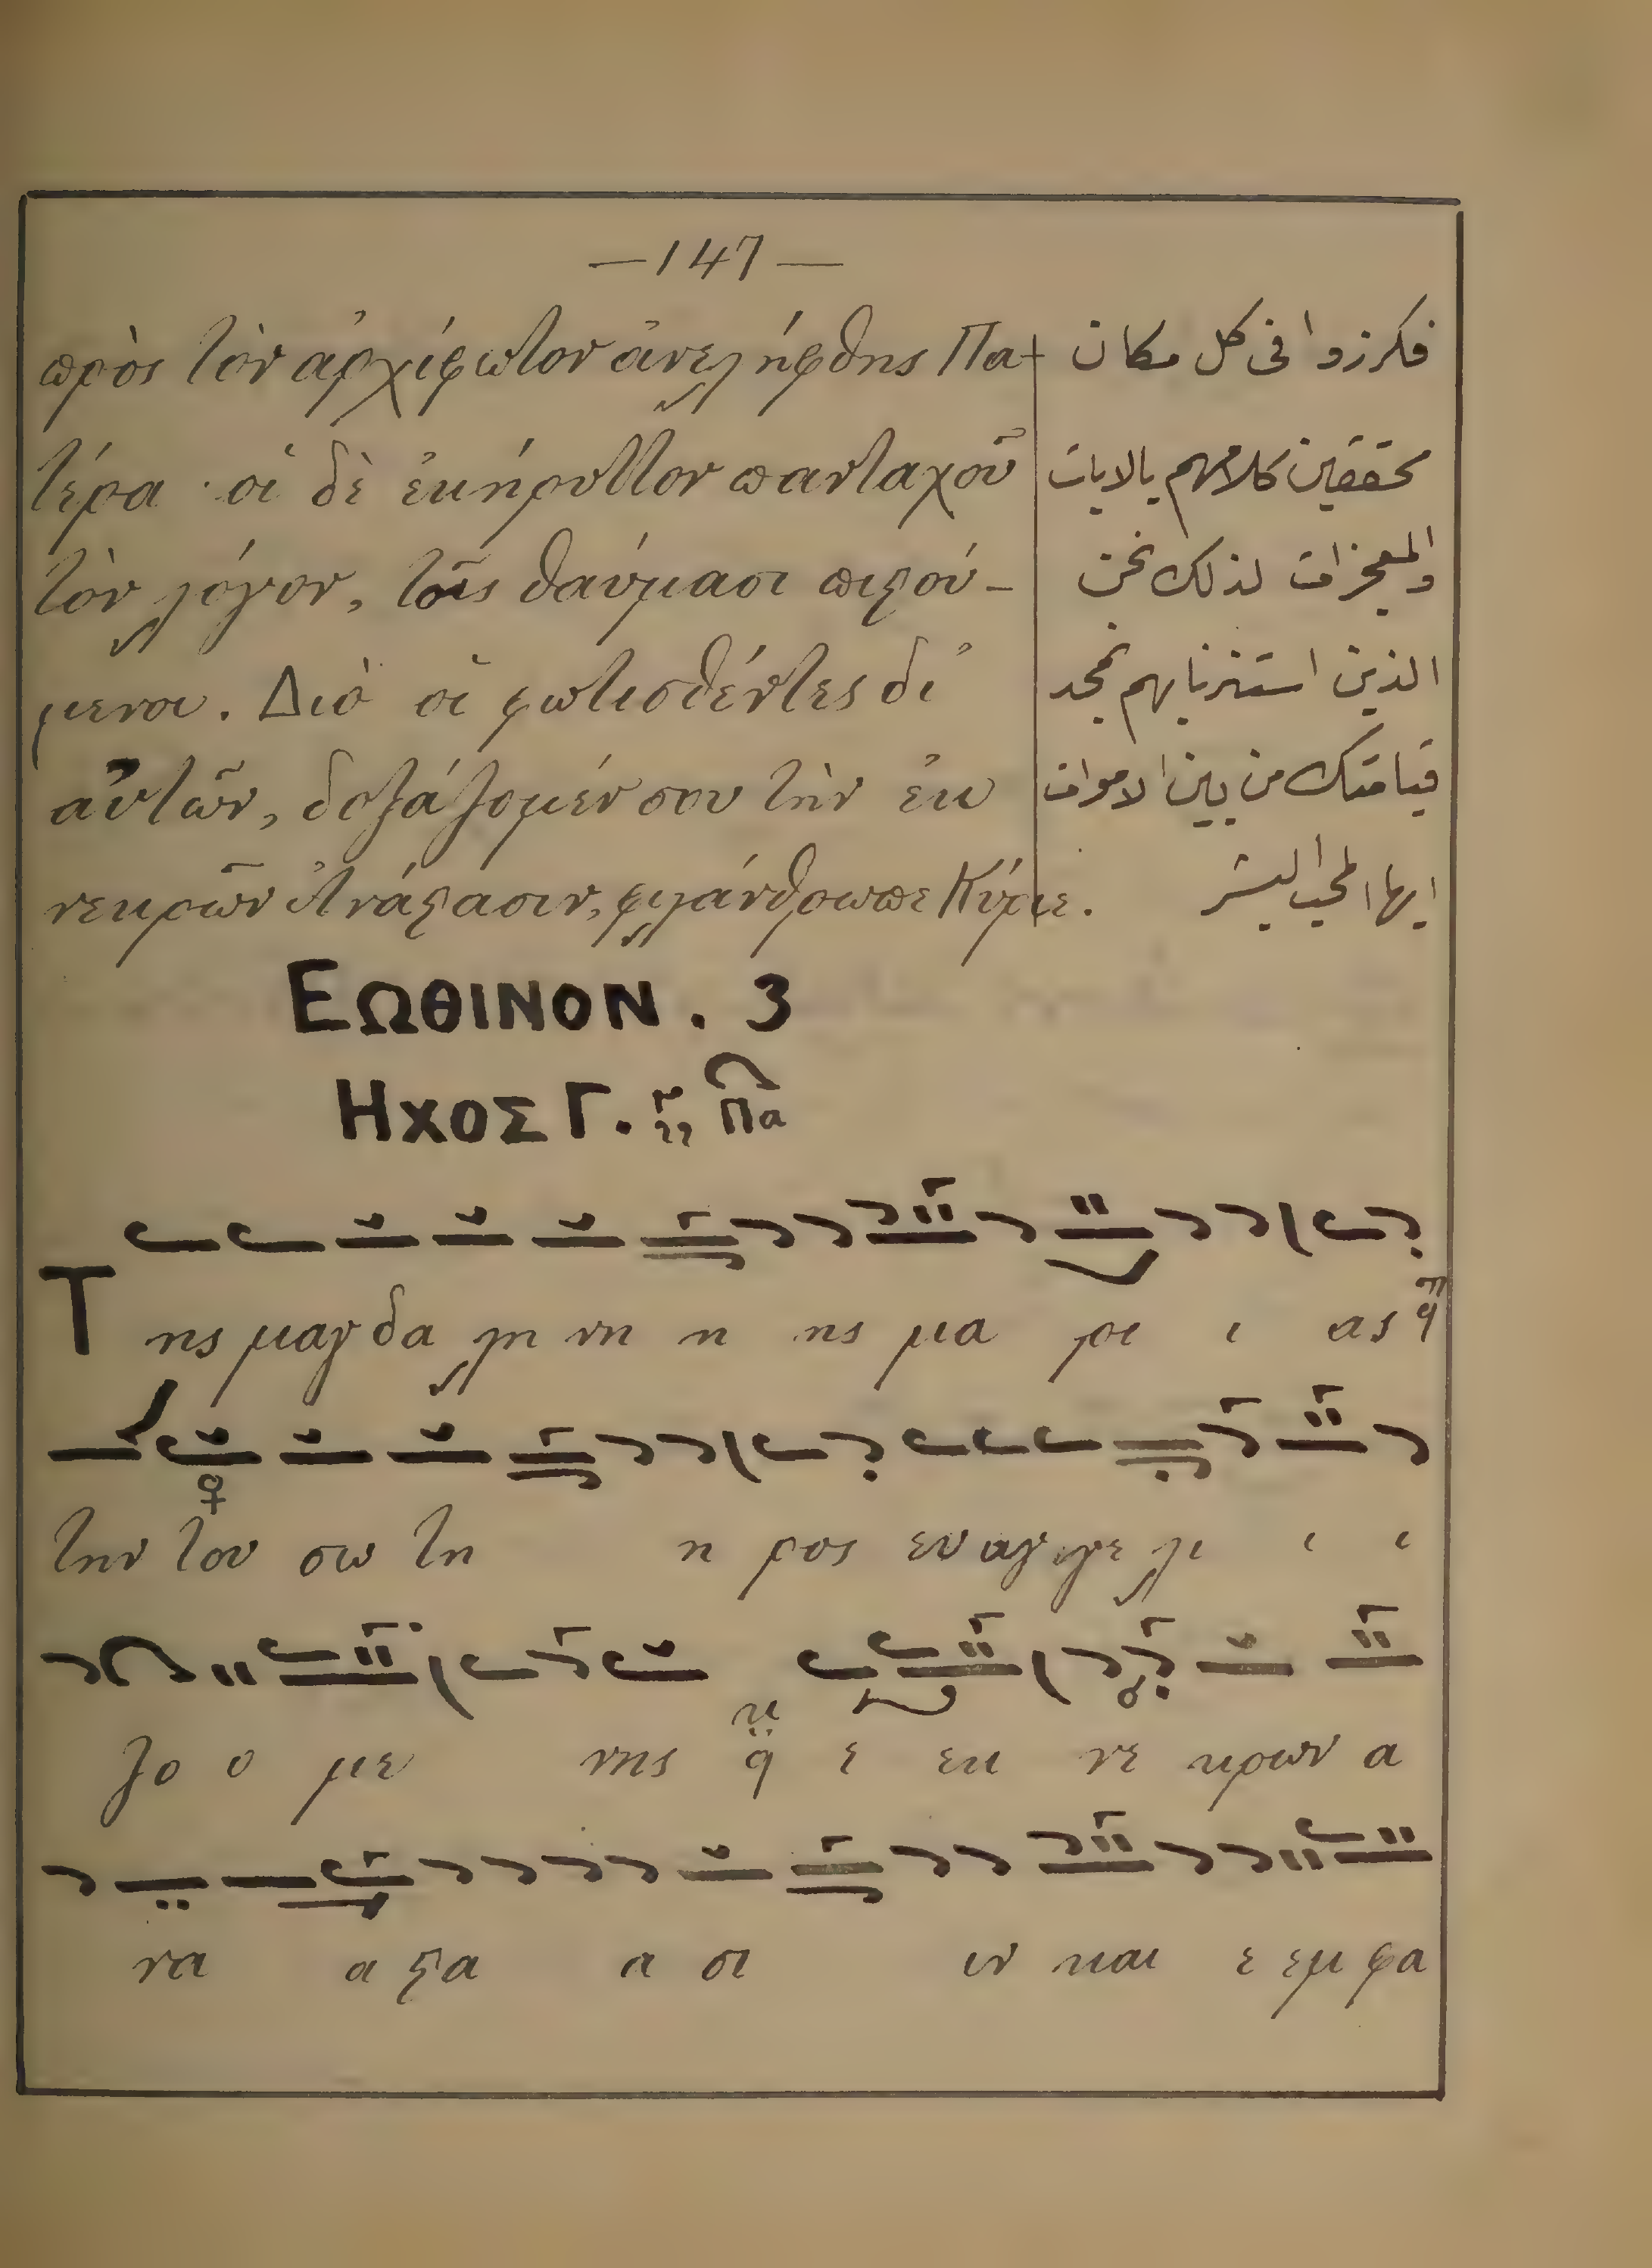 —147—
πρὸς τὸν ἀρχίφωτον ἀνελήφθης Πα-
τέρα· οἱ δὲ ἐκήρυττον πανταχοῦ
τὸν λόγον, τοῖς θαύμασι πιςού-
μενοι. Διὸ οἱ φωτισθέντες δι'
αὐτῶν, δοξάζομέν σου τὴν ἐκ
νεκρῶν Ἀνάςασιν, φιλάνθρωπε Κύριε.
فكرزوا فى كل مكان
محققين كلامهم بالايات
والمعجزات لذلك نحن
الذين استنرنا بهم نمجد
قيامتك من بين الاموات
ايها المحب البشر
ΕΩΘΙΝΟΝ. 3
ΗΧΟΣ Γ. Πα
Της μαγ δα λη νη η ης μα ρι ι ας
την του σω τη η ρος ευ αγ γε λι ι ι
ζο ο με νης ε εκ νε κρων α
να α ςα α σι ιν και ε εμ φα